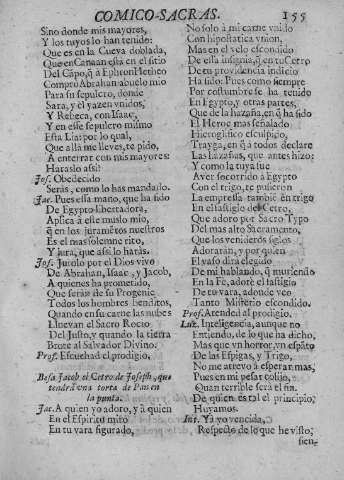 COMICO-SACRAS. 155
Sino donde mis mayores,
Y los tuyos lo han tenido:
Que es en la Cueva doblada,
Que en Canaan està en el sitio
Del Cãpo, q̃ a Ephron Hetheo
Comprò Abrahan abuelo mio
Para su sepulcro, donde
Sara, y èl yazen vnidos,
Y Rebeca, con Isaac,
Y en esse sepulcro mismo
Està Lia: por lo qual,
Que allà me lleves, te pido,
A enterrar con mis mayores:
Haràslo assi?
Jos. Obedecido
Seràs, como lo has mandado.
Jac. Pues essa mano, que ha sido
De Egypto libertadora,
Aplica à este muslo mio,
q̃ en los juramẽtos nuestros
Es el mas solemne rito,
Y jura, que assi lo haràs.
Jos. Jurolo por el Dios vivo
De Abrahan, Isaac, y Jacob,
A quienes ha prometido,
Que seràs de su Progenie
Todos los hombres benditos,
Quando en su carne las nubes
Lluevan el Sacro Rocio
Del Justo, y quando la tierra
Brote al Salvador Divino.
Prof. Escuchad el prodigio.
Besa Jacob el Cetro de Joseph, que
tendrà vna torta de Pan en
la punta.
Jac. A quien yo adoro, y à quien
En el Espiritu miro
En tu vara figurado,
No solo à mi carne vnido
Con hipostatica vnion,
Mas en el velo escondido
De essa insignia, q̃ en tu Cetro
De tu providencia indicio
Ha sido: Pues como siempre
Por costumbre se ha tenido
En Egypto, y otras partes,
Que de la hazaña, en q̃ ha sido
El Heroe mas señalado
Hieroglifico esculpido,
Trayga, en q̃ à todos declare
Las hazañas, que antes hizo:
Y como la tuya fue
Aver socorrido à Egypto
Con el trigo, te pusieron
La empressa tambiẽ en trigo
En el fastigio del Cetro,
Que adoro por Sacro Typo
Del mas alto Sacramento,
Que los venideros siglos
Adoraràn, y por quien
El vaso dirà elegido
De mi hablando, q̃ muriendo
En la Fè, adorè el fastigio
De tu vara, adonde veo
Tanto Misterio escondido.
Prof. Atended al prodigio.
Luz. Inteligencia, aunque no
Entiendo, de lo que ha dicho,
Mas que vn horror, vn espãto
De las Espigas, y Trigo,
No me atrevo à esperar mas,
Pues en mi pesar colijo,
Quan terrible serà el fin.
De quien es tal el principio,
Huyamos.
Int. Yà yo vencida,
Respecto de lo que he visto,
sien-